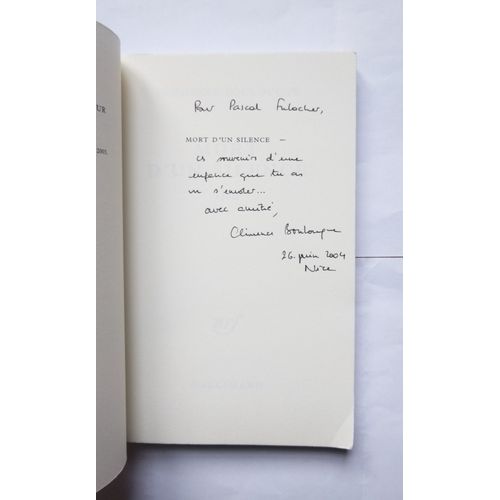 UR
2003.
Pour Pascal Fulacher,
MORT D'UN SILENCE —
ces souvenirs d'une
enfance que tu as
vu s'envoler...
avec amitié,
Clémence Boulouque
26 juin 2004
Nice
nrf
GALLIMARD